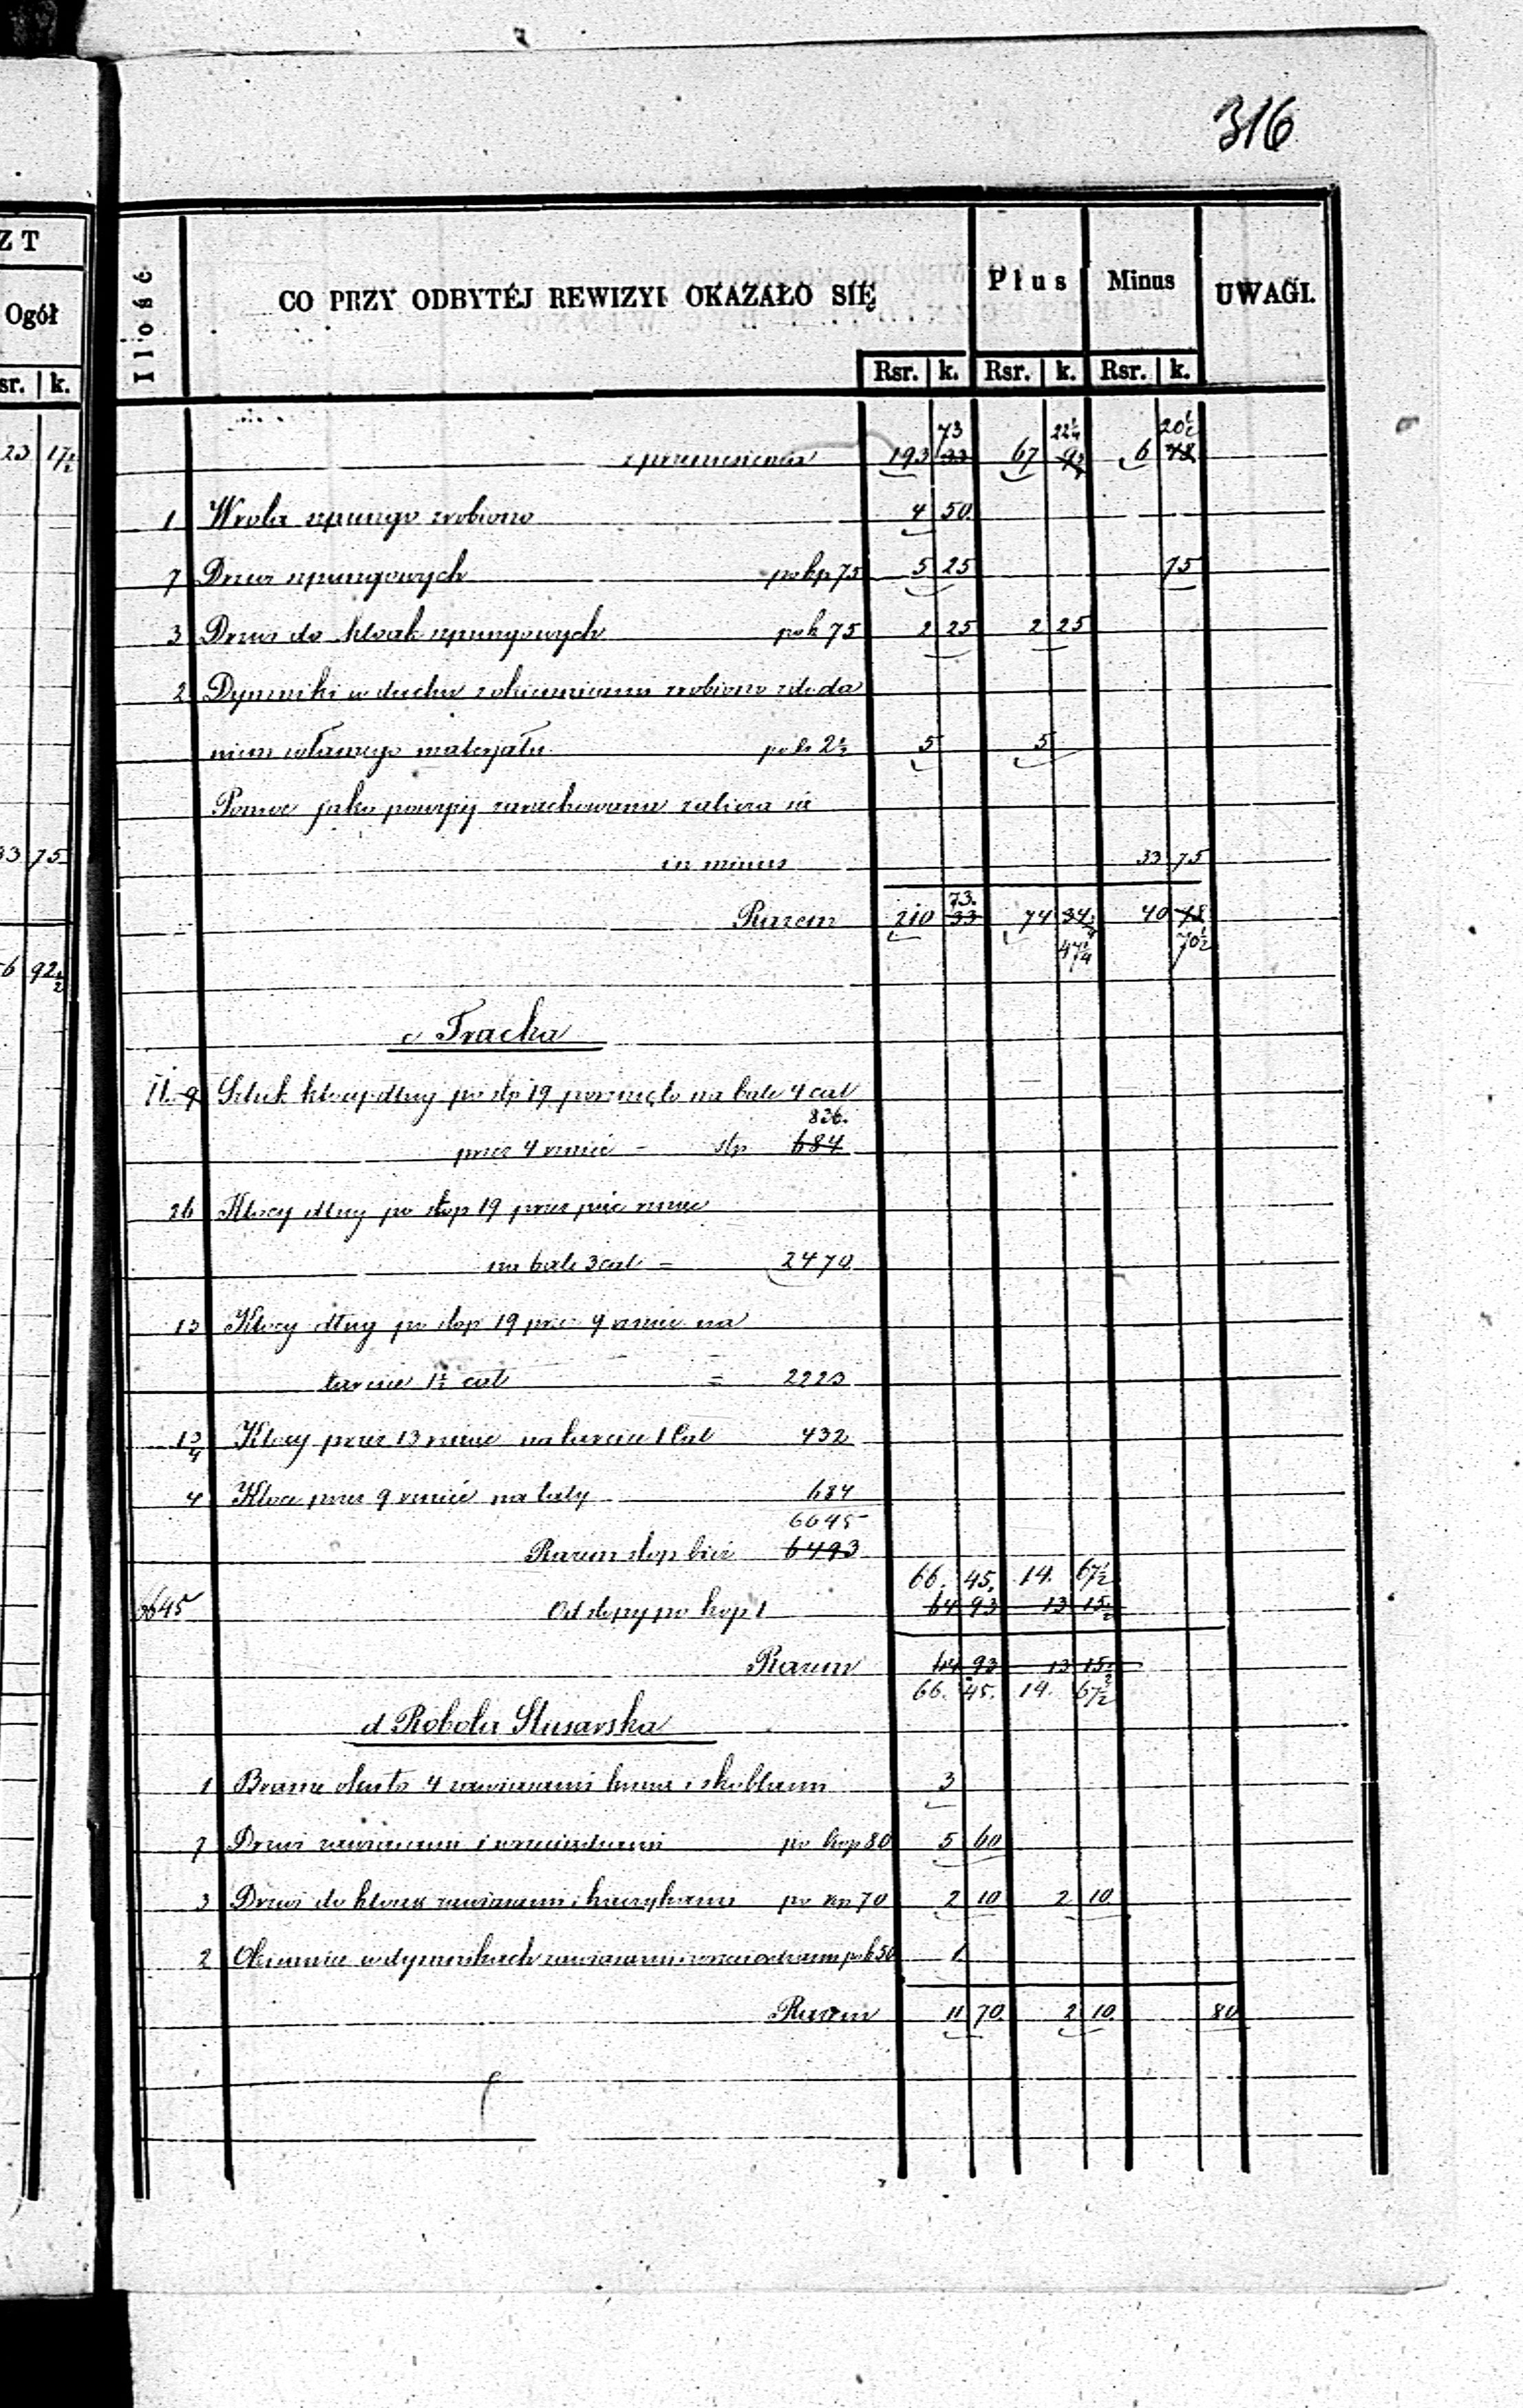 316
ZT
Ogół
sr. k.
23 17½
33 75
56 92½
Ilość CO PRZY ODBYTÉJ REWIZYI OKAZAŁO SIĘ Plus Minus UWAGI.
Rsr. k. Rsr. k. Rsr. k.
73 22¼ 20½
z przeniesienia 193 33 67 9¾ 6 48
1 Wrota szpungo zrobiono 4 50
7 Drzwi szpungowych po kp 75 5 25 75
3 Drzwi do kloak szpungowych po k 75 2 25 2 25
2 Dymniki w dachu z okienicami zrobiono z doda
niem własnego materjału po rs 2½ 5 5
Pomoc jako powyżej zarachowana zalicza się
in minus 33 75
73.
Razem 210 33 74 34¾ 40 48
47¼ 70½
c Tracka
11. 9 Sztuk klocy dług po stp 19 porznięto na bale 4 cal
836.
przez 4 rznięć – stp 684
26 Klocy dług po stop 19 przez pięć rznięć
na bale 3 cal = 2470
13 Klocy dług po stop 19 przez 9 rznięć na
tarcice 1½ cal = 2223
1¾ Klocy przez 13 rznięć na tarcice 1 Cal 432
4 Kloce przez 9 rznięć na łaty 684
6645
Razem stop bież 6493
66. 45. 14. 67½
6645 Od stopy po kop 1 64 93 13 15½
Razem 64 93 13 15½
66. 45. 14. 67½
d Robota Ślusarska
1 Brama okuta 4 zawiasami hakna i skoblami 3
7 Drzwi zawiasami i wrzeciądzami po kop 80 5 60
3 Drzwi do kloak zawiasami i haczykami po kp 70 2 10 2 10
2 Okienice w dymnikach zawiasami i wrzeciądzami po k 50 1
Razem 11 70 2 10 80